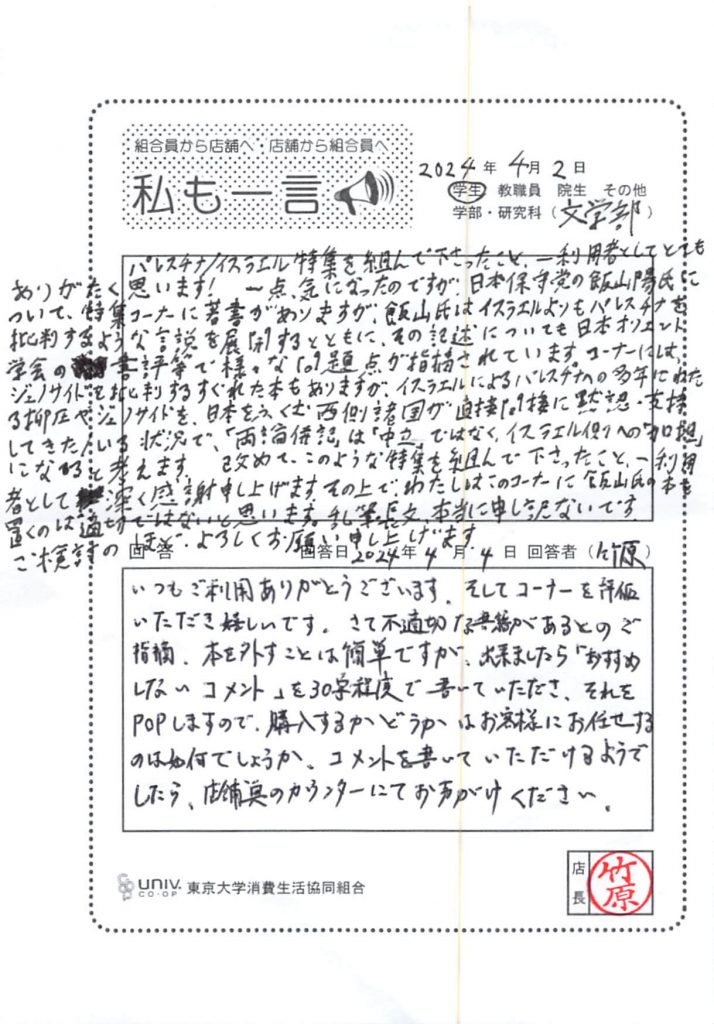 組合員から店舗へ・店舗から組合員へ
私も一言
2024年 4月 2日
学生 教職員 院生 その他
学部・研究科（文学部）
パレスチナ/イスラエル特集を組んで下さったこと、一利用者としてとても
ありがたく思います！ 一点、気になったのですが、日本保守党の飯山陽氏に
ついて、特集コーナーに著書がありますが、飯山氏はイスラエルよりもパレスチナを
批判するような言説を展開するとともに、その記述についても日本オリエント
学会の書評等で様々な問題点が指摘されています。コーナーには、
ジェノサイドを批判するすぐれた本もありますが、イスラエルによるパレスチナへの多年にわた
る抑圧やジェノサイドを、日本をふくむ西側諸国が直接間接に黙認・支援
してきた/いる状況で、「両論併記」は「中立」ではなく、イスラエル側への"加担"
になると考えます。 改めて、このような特集を組んで下さったこと、一利用
者として深く感謝申し上げます。その上で、わたしはこのコーナーに飯山氏の本を
置くのは適切ではないと思います。乱筆長文、本当に申し訳ないです。
ご検討のほど、よろしくお願い申し上げます
回答 回答日 2024年 4月 4日 回答者（竹原）
いつもご利用ありがとうございます。そしてコーナーを評価
いただき嬉しいです。さて不適切な書籍があるとのご
指摘、本を外すことは簡単ですが、出来ましたら「おすすめ
しないコメント」を30字程度で書いていただき、それを
POPしますので、購入するかどうかはお客様にお任せする
のは如何でしょうか。コメントを書いていただけるようで
したら、店舗奥のカウンターにてお声がけください。
UNIV. CO-OP 東京大学消費生活協同組合
店長 竹原